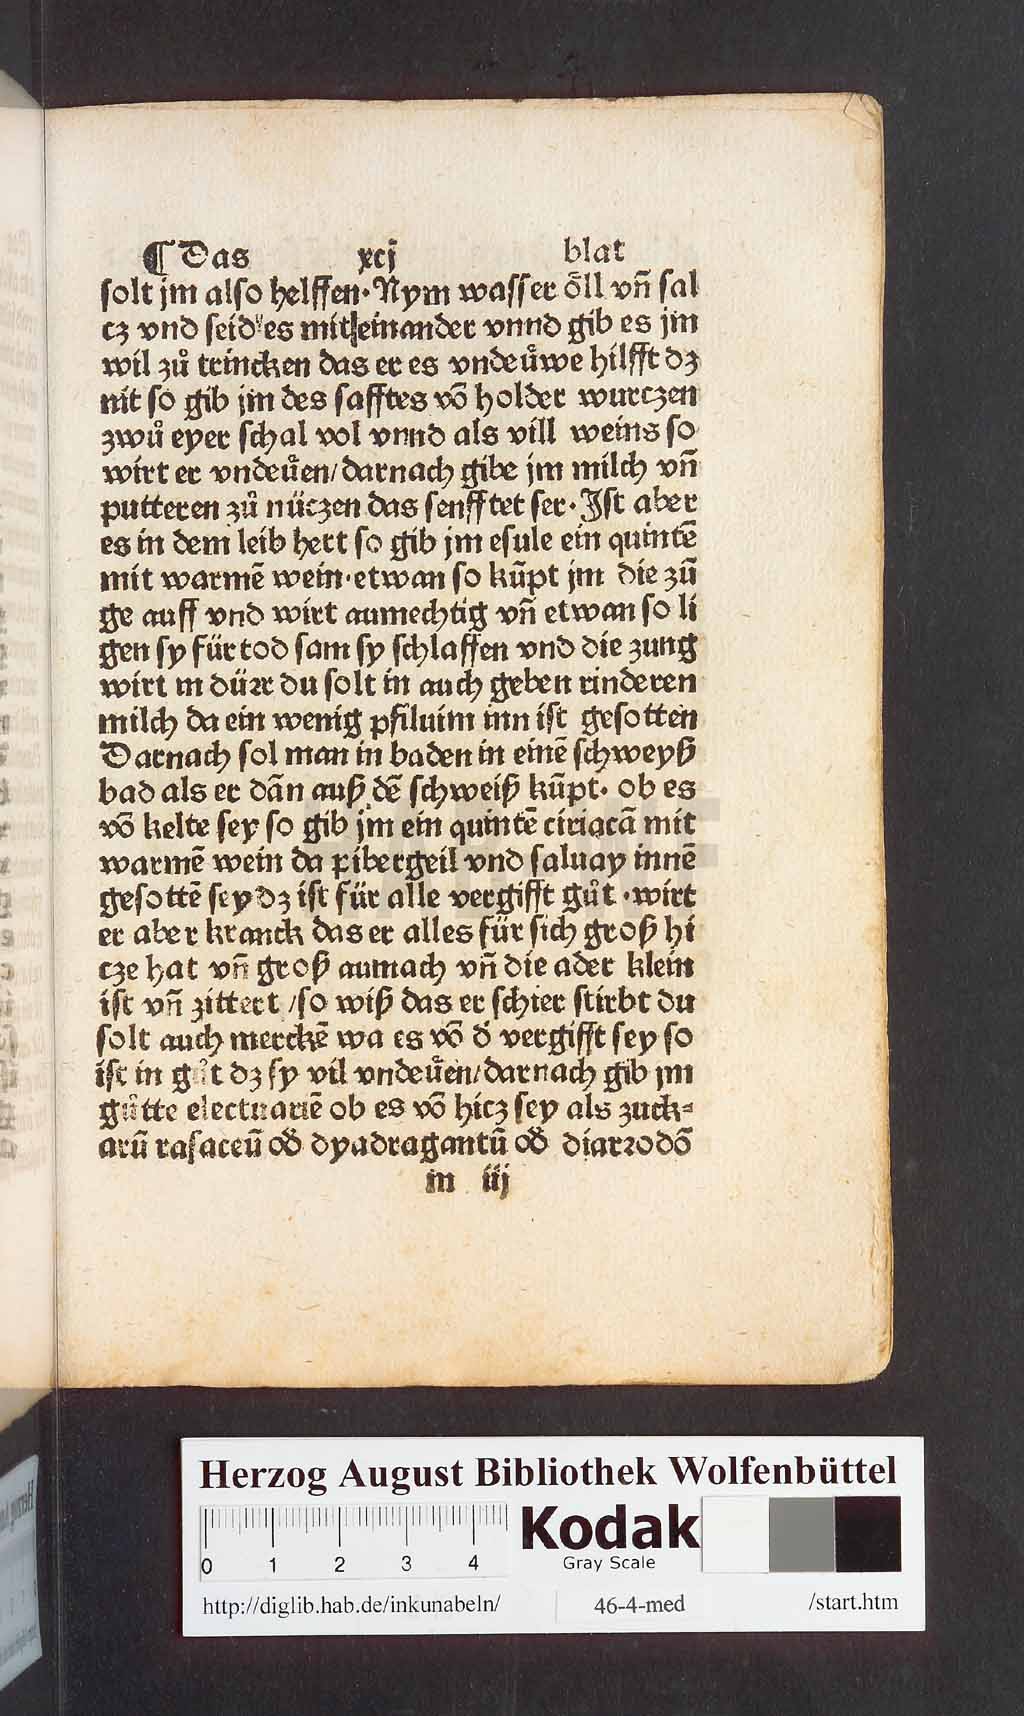 ¶ Das xcj blat
solt jm also helffen. Nym wasser oͤll vn̄ sal
cz vnd seid es mit einander vnnd gib es jm
wil zuͦ trincken das er es vndeuͤwe hilfft dz
nit so gib jm des safftes vō holder wurczen
zwuͦ eyer schal vol vnnd als vill weins so
wirt er vndeuͤen/ darnach gibe jm milch vn̄
putteren zuͦ nüczen das senfftet ser. Ist aber
es in dem leib hert so gib jm esule ein quintē
mit warmē wein. etwan so kūpt jm die zū
ge auff vnd wirt aumechtig vn̄ etwan so li
gen sy für tod sam sy schlaffen vnd die zung
wirt in dürꝛ du solt in auch geben rinderen
milch da ein wenig psiluim inn ist gesotten
Darnach sol man in baden in einē schweyß
bad als er dān auß dē schweiß kūpt. ob es
vō kelte sey so gib jm ein quintē tiriacā mit
warmē wein da pibergeil vnd saluay innē
gesottē sey dz ist für alle vergifft guͦt. wirt
er aber kranck das er alles für sich groß hi
cze hat vn̄ groß aumach vn̄ die ader klein
ist vn̄ zittert /so wiß das er schier stirbt du
solt auch merckē wa es vō d̓ vergifft sey so
ist in guͦt dz sy vil vndeuͤen/ darnach gib jm
guͦtte electuariē ob es vō hicz sey als zuck=
arū rasaceū od̓ dyadragantū od̓ diarꝛodō
m iij
Herzog August Bibliothek Wolfenbüttel
0 1 2 3 4
Kodak
Gray Scale
http://diglib.hab.de/inkunabeln/ 46-4-med /start.htm